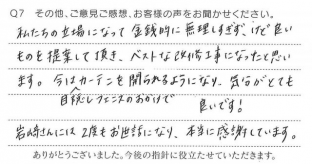 Q7 その他、ご意見ご感想、お客様の声をお聞かせください。
私たちの立場になって金銭的に無理しすぎず、けど良い
ものを提案して頂き、ベストな改修工事になったと思い
ます。今はカーテンを開られるようになり、気分がとても
目隠しフェンスのおかげで 良いです!
岩崎さんには2度もお世話になり、本当に感謝しています。
ありがとうございました。今後の指針に役立たせていただきます。